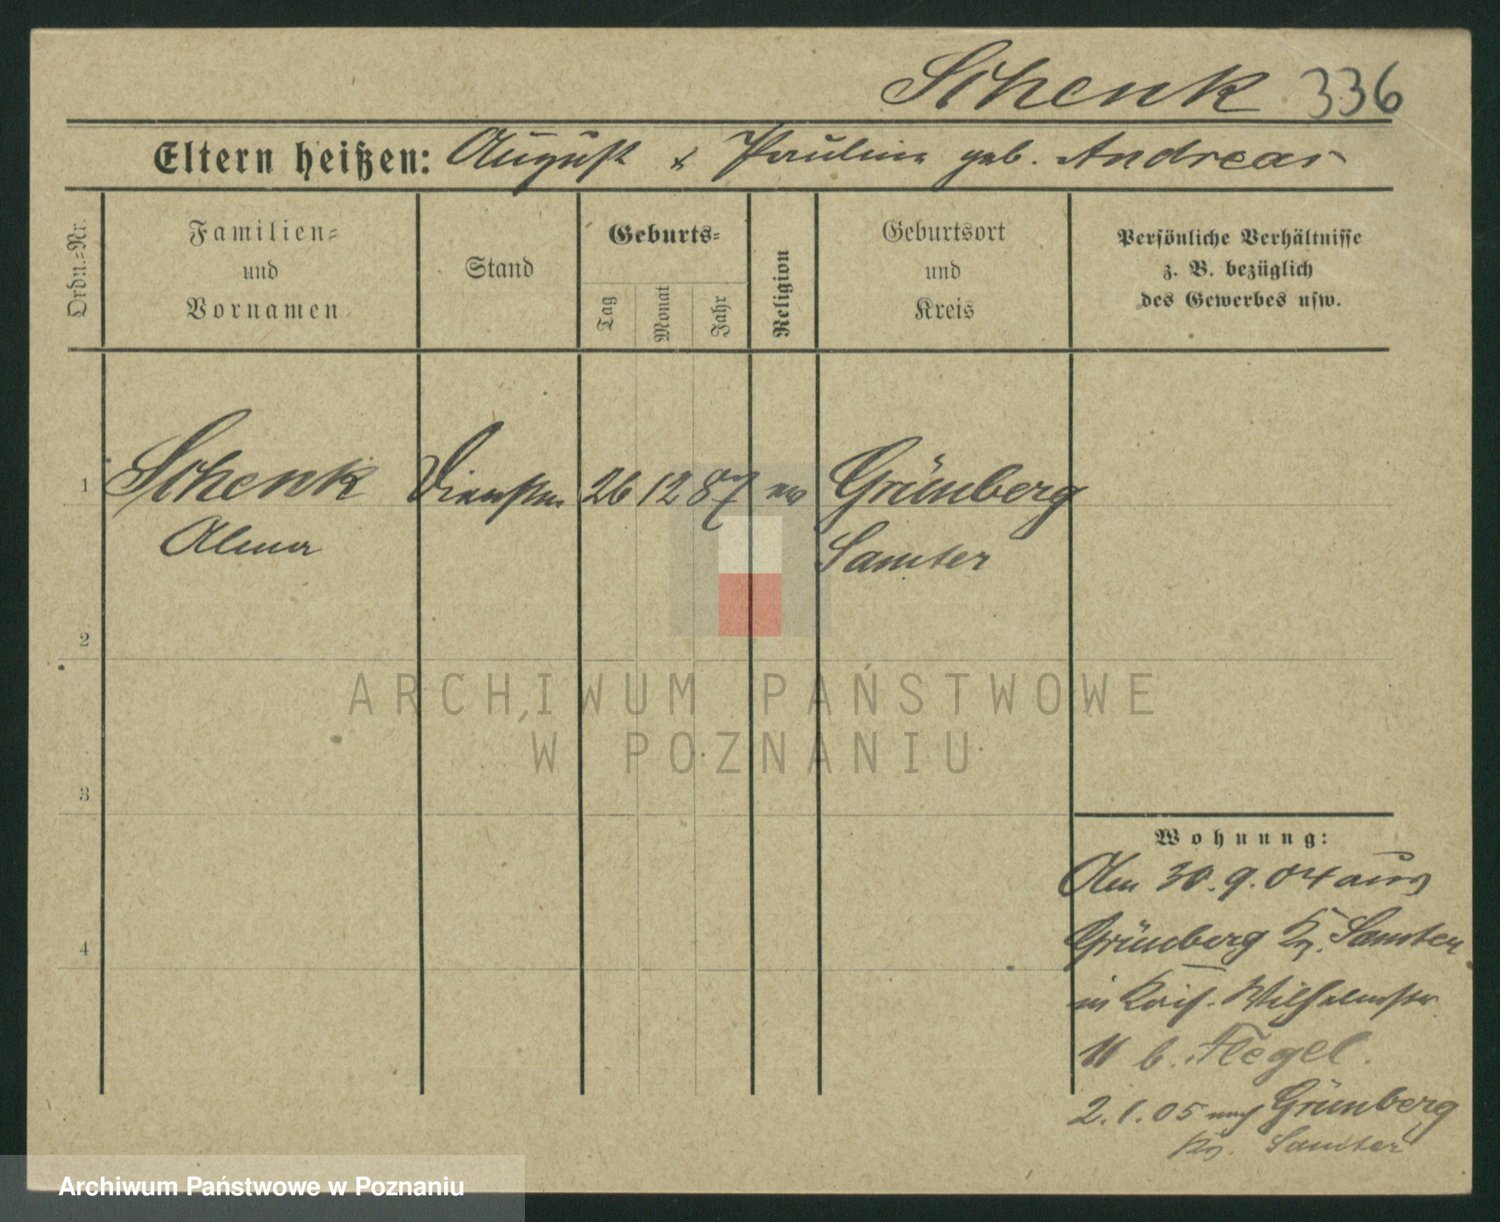 Schenk 336
Eltern heißen: August & Pauline geb. Andreas
Ordn.-Nr.
Familien-
und
Vornamen
Stand
Geburts-
Tag
Monat
Jahr
Religion
Geburtsort
und
Kreis
Persönliche Verhältnisse
z. B. bezüglich
des Gewerbes usw.
1 Schenk 26 12 87 ev Grünberg
Alma Samter
2
ARCHIWUM PAŃSTWOWE
W POZNANIU
3
Wohnung:
Am 30.9.04 aus
Grünberg Kr. Samter
in Kais. Wilhelmstr
11 b. Flegel.
4
2.1.05 nach Grünberg
Kr. Samter
Archiwum Państwowe w Poznaniu